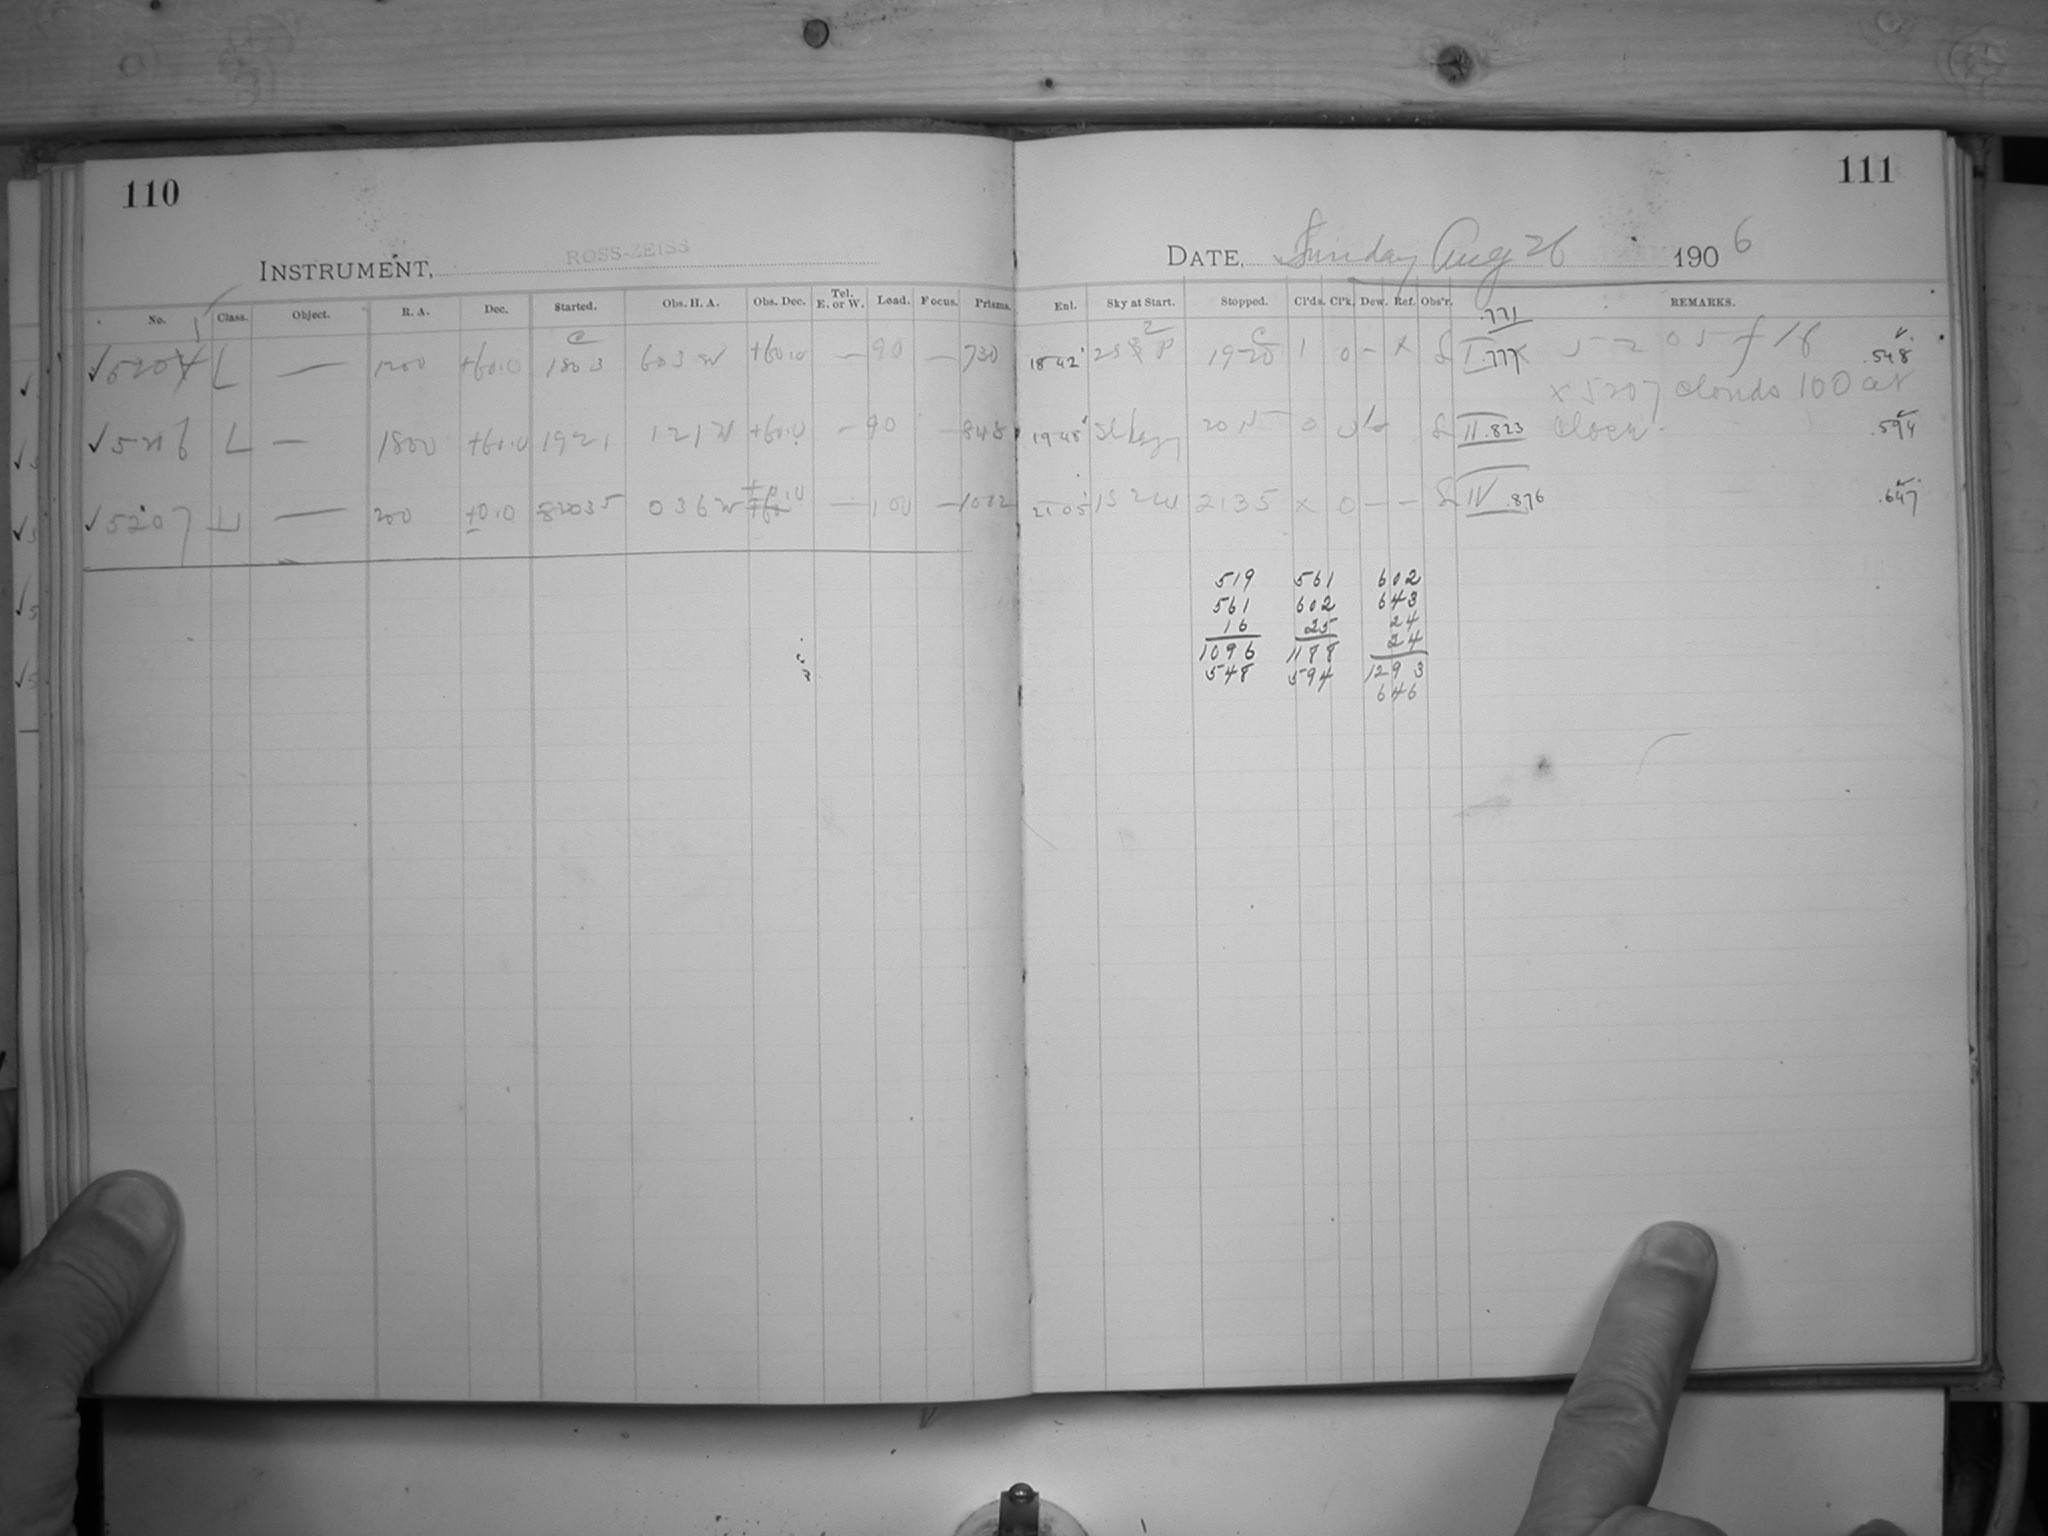 110
INSTRUMENT, ROSS-ZEISS
No. Class. Object. R. A. Dec. Started. Obs. H. A. Obs. Dec. Tel. E. or W. Load. Focus. Prisms.
5
✓5204 L — 1200 +60.0 1803 603 W +60.0 — 90 — 730
✓5206 L — 1800 +60.0 1921 121 W +60.0 — 90 — 848
✓5207 L — 200 +0.0 2035 036 W +0.0 — 100 — 1002
111
DATE, Sunday Aug 26 1906
Enl. Sky at Start. Stopped. Cl'ds. Cl'k. Dew. Ref. Obs'r. REMARKS.
.771
1842 1920 1 0 – x I .777 5205 f 16 .548
x 5207 clouds 100 at
1948 Sl hazy 20 0 II .823 close. .594
2105 2135 x 0 – – IV .876 .647
519 561 602
561 602 643
16 25 24
24
1096 1188
548 594 1293
646